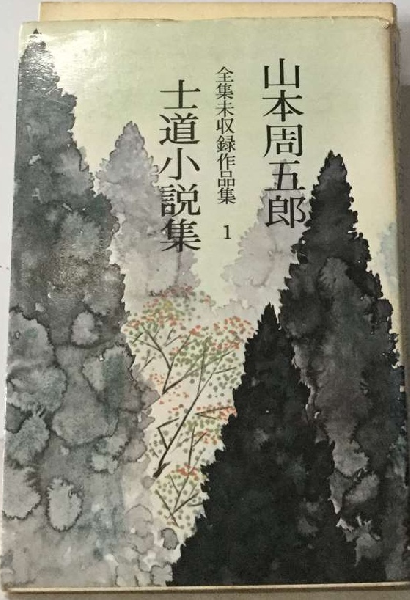 山本周五郎
全集未収録作品集 1
士道小説集